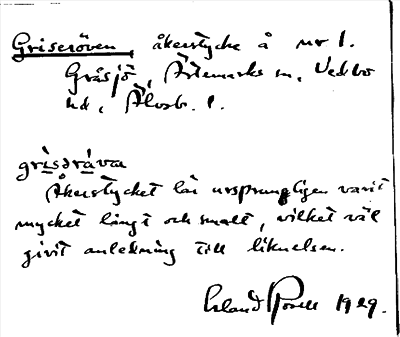 Griseröven, åkerstycke å nr 1.
Gråsjö, Ärtemarks sn, Vedbo
hd, Älvsb. l.
grìsərávən
Åkerstycket lär ursprungligen varit
mycket långt och smalt, vilket väl
givit anledning till liknelsen.
Erland Rosell 1929.